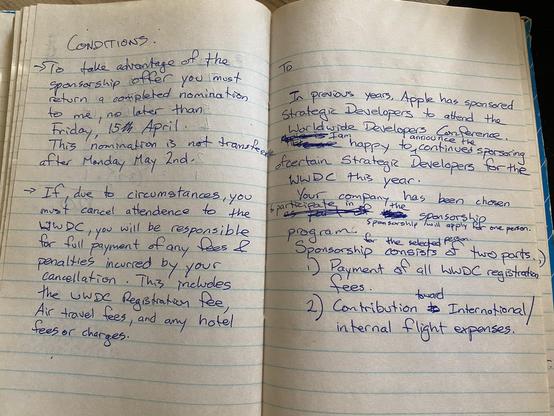 CONDITIONS.
→ To take advantage of the
sponsorship offer you must
return a completed nomination
to me, no later than
Friday, 15th April.
This nomination is not transfe
after Monday May 2nd.
→ If, due to circumstances, you
must cancel attendence to the
WWDC, you will be responsible
for full payment of any fees &
penalties incurred by your
cancellation. This includes
the WWDC Registration fee,
Air travel fees, and any hotel
fees or charges.
To
In previous years, Apple has sponsored
Strategic Developers to attend the
Worldwide Developers Conference.
I am happy to announce the continued sponsoring
of certain Strategic Developers for the
WWDC this year.
Your company has been chosen
to participate in the sponsorship
program. sponsorship will apply for one person.
for the selected person
Sponsorship consists of two parts. :)
1) Payment of all WWDC registration
fees.
2) Contribution toward International/
internal flight expenses.